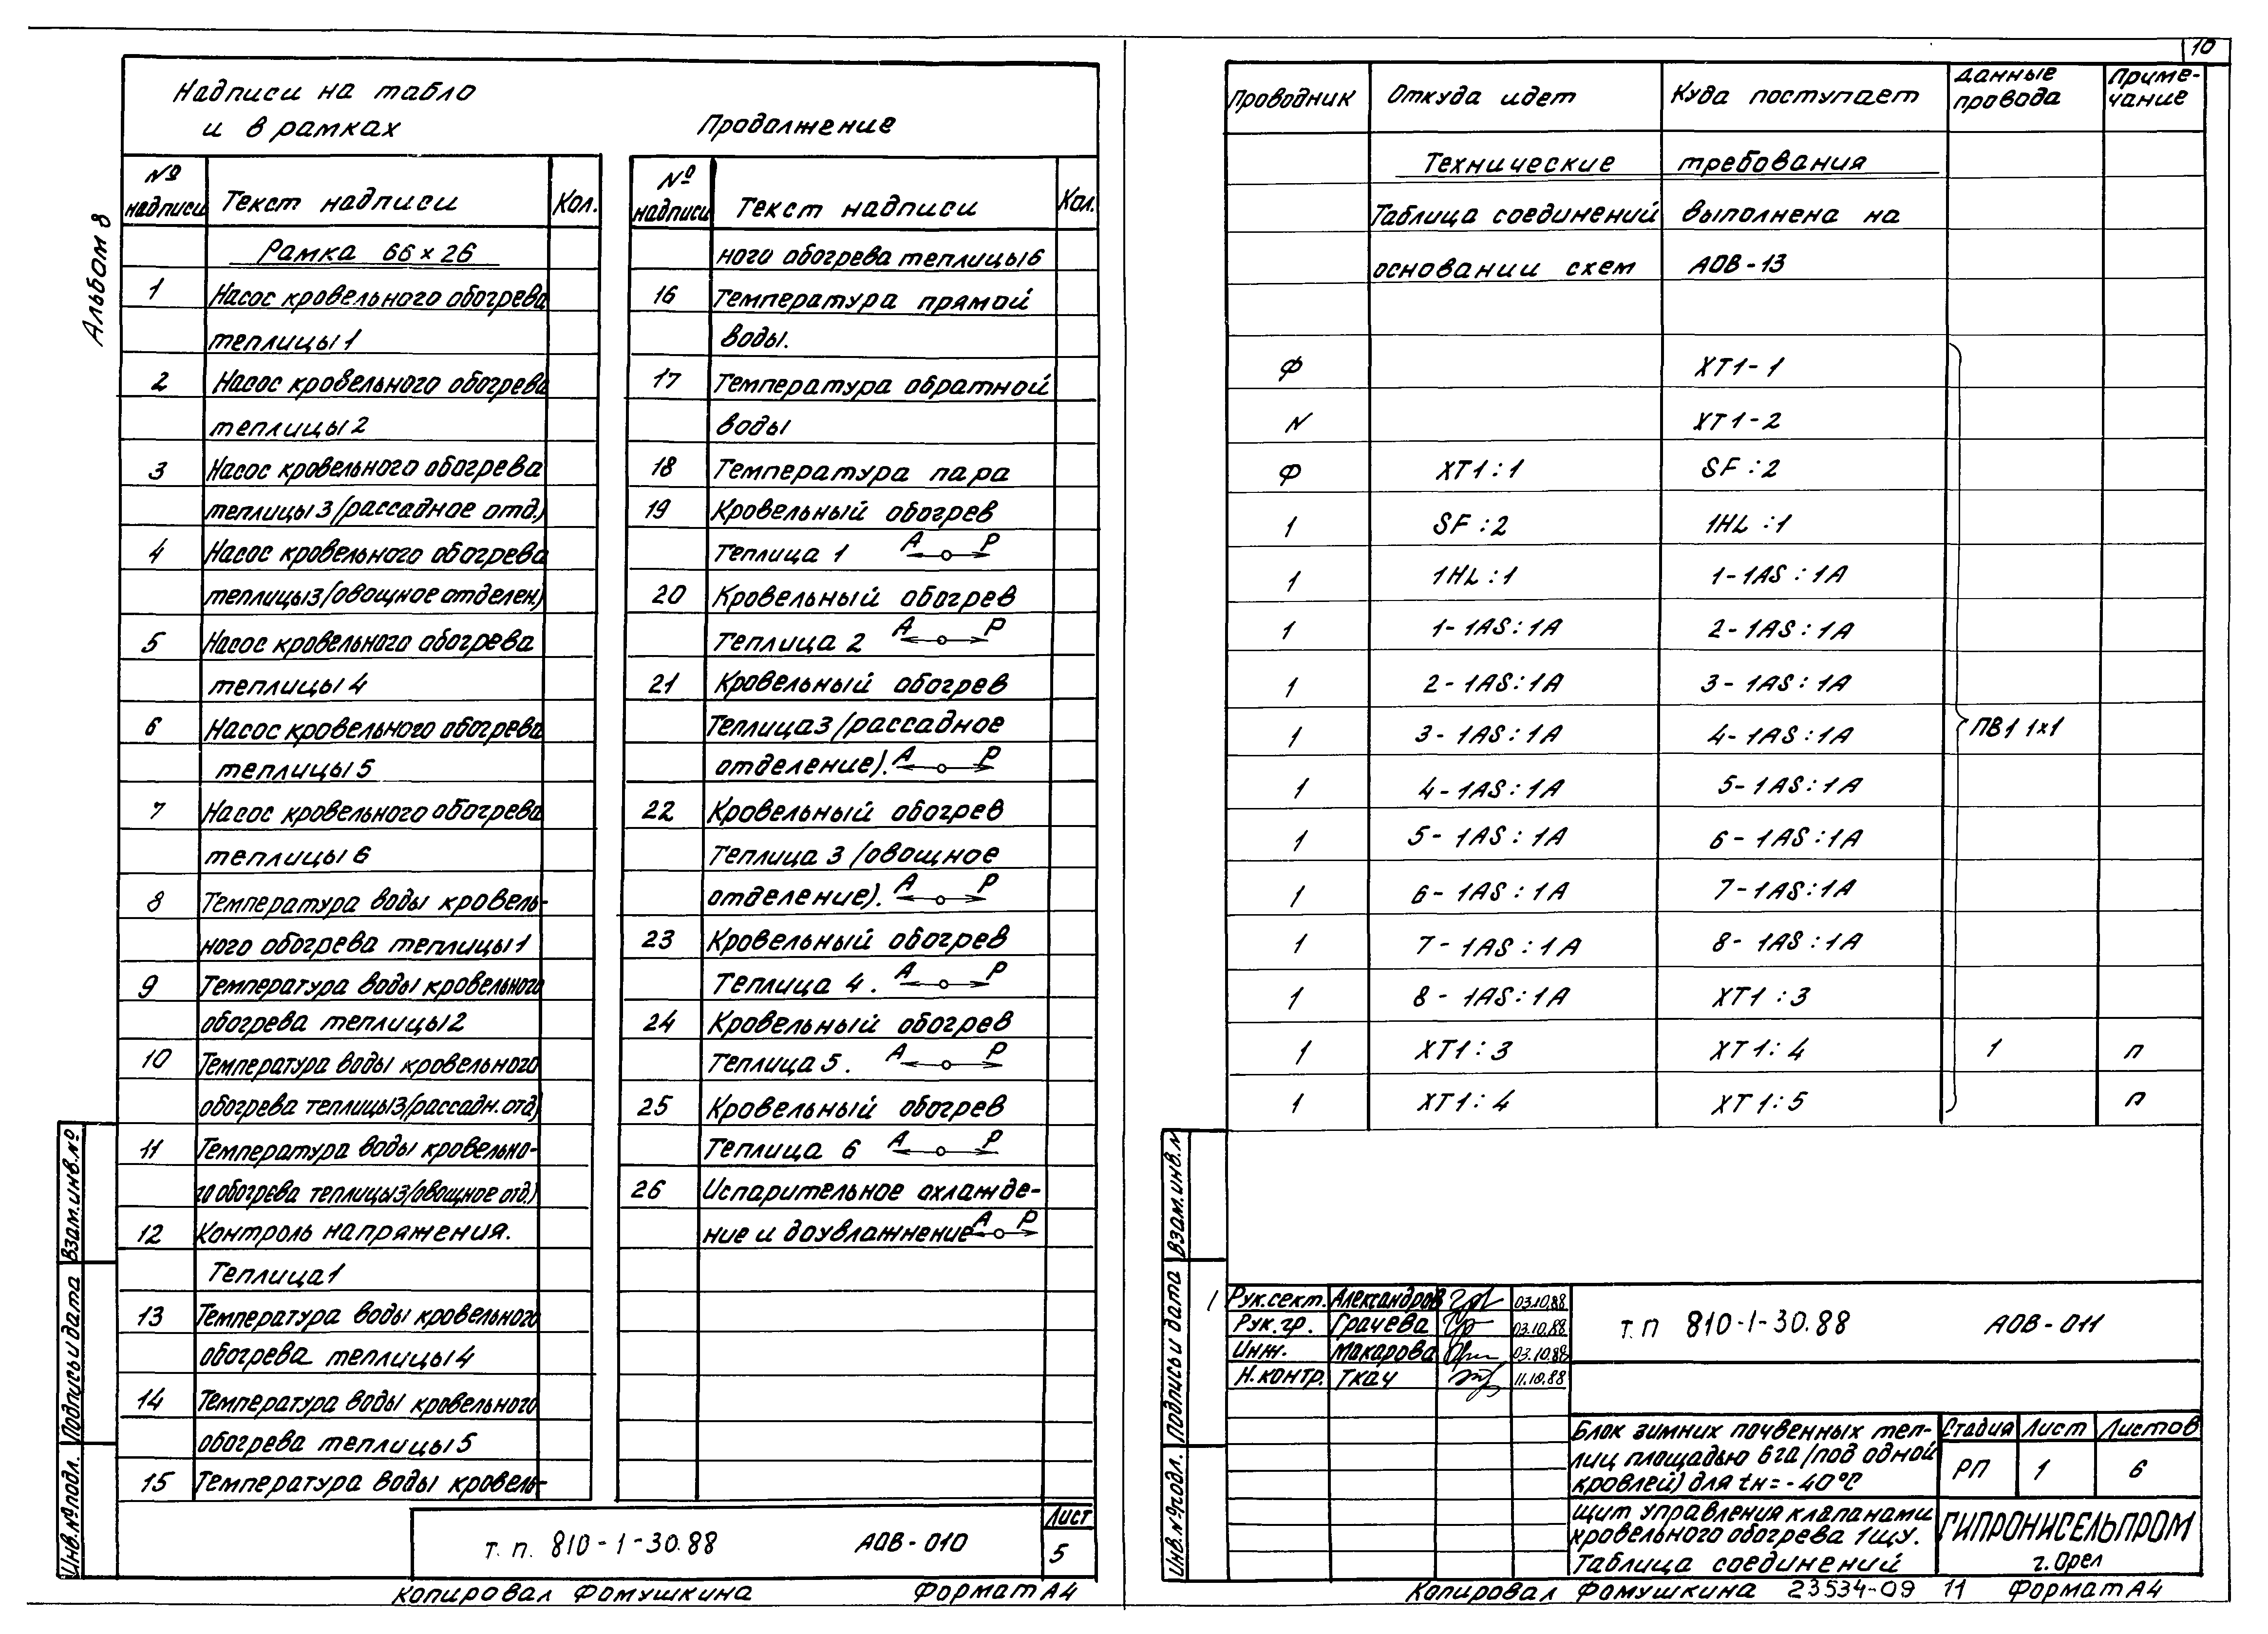 Альбом 8
Надписи на табло
и в рамках
№ надписи Текст надписи Кол.
Рамка 66×26
1 Насос кровельного обогрева
теплицы 1
2 Насос кровельного обогрева
теплицы 2
3 Насос кровельного обогрева
теплицы 3 /рассадное отд.)
4 Насос кровельного обогрева
теплицы 3 /овощное отделен)
5 Насос кровельного обогрева
теплицы 4
6 Насос кровельного обогрева
теплицы 5
7 Насос кровельного обогрева
теплицы 6
8 Температура воды кровель-
ного обогрева теплицы 1
9 Температура воды кровельного
обогрева теплицы 2
10 Температура воды кровельного
обогрева теплицы 3 /рассадн. отд)
11 Температура воды кровельно-
го обогрева теплицы 3 /овощное отд.)
12 Контроль напряжения.
Теплица 1
13 Температура воды кровельного
обогрева теплицы 4
14 Температура воды кровельного
обогрева теплицы 5
15 Температура воды кровель-
Продолжение
№ надписи Текст надписи Кол.
ного обогрева теплицы 6
16 Температура прямой
воды.
17 Температура обратной
воды
18 Температура пара
19 Кровельный обогрев
Теплица 1 А Р
20 Кровельный обогрев
Теплица 2 А Р
21 Кровельный обогрев
Теплица 3 /рассадное
отделение). А Р
22 Кровельный обогрев
Теплица 3 /овощное
отделение). А Р
23 Кровельный обогрев
Теплица 4. А Р
24 Кровельный обогрев
Теплица 5. А Р
25 Кровельный обогрев
Теплица 6 А Р
26 Испарительное охлажде-
ние и доувлажнение А Р
Взам.инв.№
Подпись и дата
Инв.№ подл.
т. п. 810-1-30.88 АОВ-010
Лист
5
Копировал Фомушкина Формат А4
10
Проводник Откуда идет Куда поступает Данные провода Приме-чание
Технические требования
Таблица соединений выполнена на
основании схем АОВ-13
Ф ХТ1-1
N ХТ1-2
Ф ХТ1:1 SF:2
1 SF:2 1HL:1
1 1HL:1 1-1AS:1A
1 1-1AS:1A 2-1AS:1A
1 2-1AS:1A 3-1AS:1A
1 3-1AS:1A 4-1AS:1A ПВ1 1×1
1 4-1AS:1A 5-1AS:1A
1 5-1AS:1A 6-1AS:1A
1 6-1AS:1A 7-1AS:1A
1 7-1AS:1A 8-1AS:1A
1 8-1AS:1A ХТ1:3
1 ХТ1:3 ХТ1:4 1 п
1 ХТ1:4 ХТ1:5 п
Взам.инв.N
Подпись и дата
Инв.№ подл.
Рук.сект. Александров 03.10.88
Рук.гр. Грачева 03.10.88
Инж. Макарова 03.10.88
Н.контр. Ткач 11.10.88
т. п 810-1-30.88 АОВ-011
Блок зимних почвенных теп-
лиц площадью 6га /под одной
кровлей) для tн=-40°С
Стадия Лист Листов
РП 1 6
Щит управления клапанами
кровельного обогрева 1ЩУ.
Таблица соединений
ГИПРОНИСЕЛЬПРОМ
г. Орел
Копировал Фомушкина 23534-09 11 Формат А4